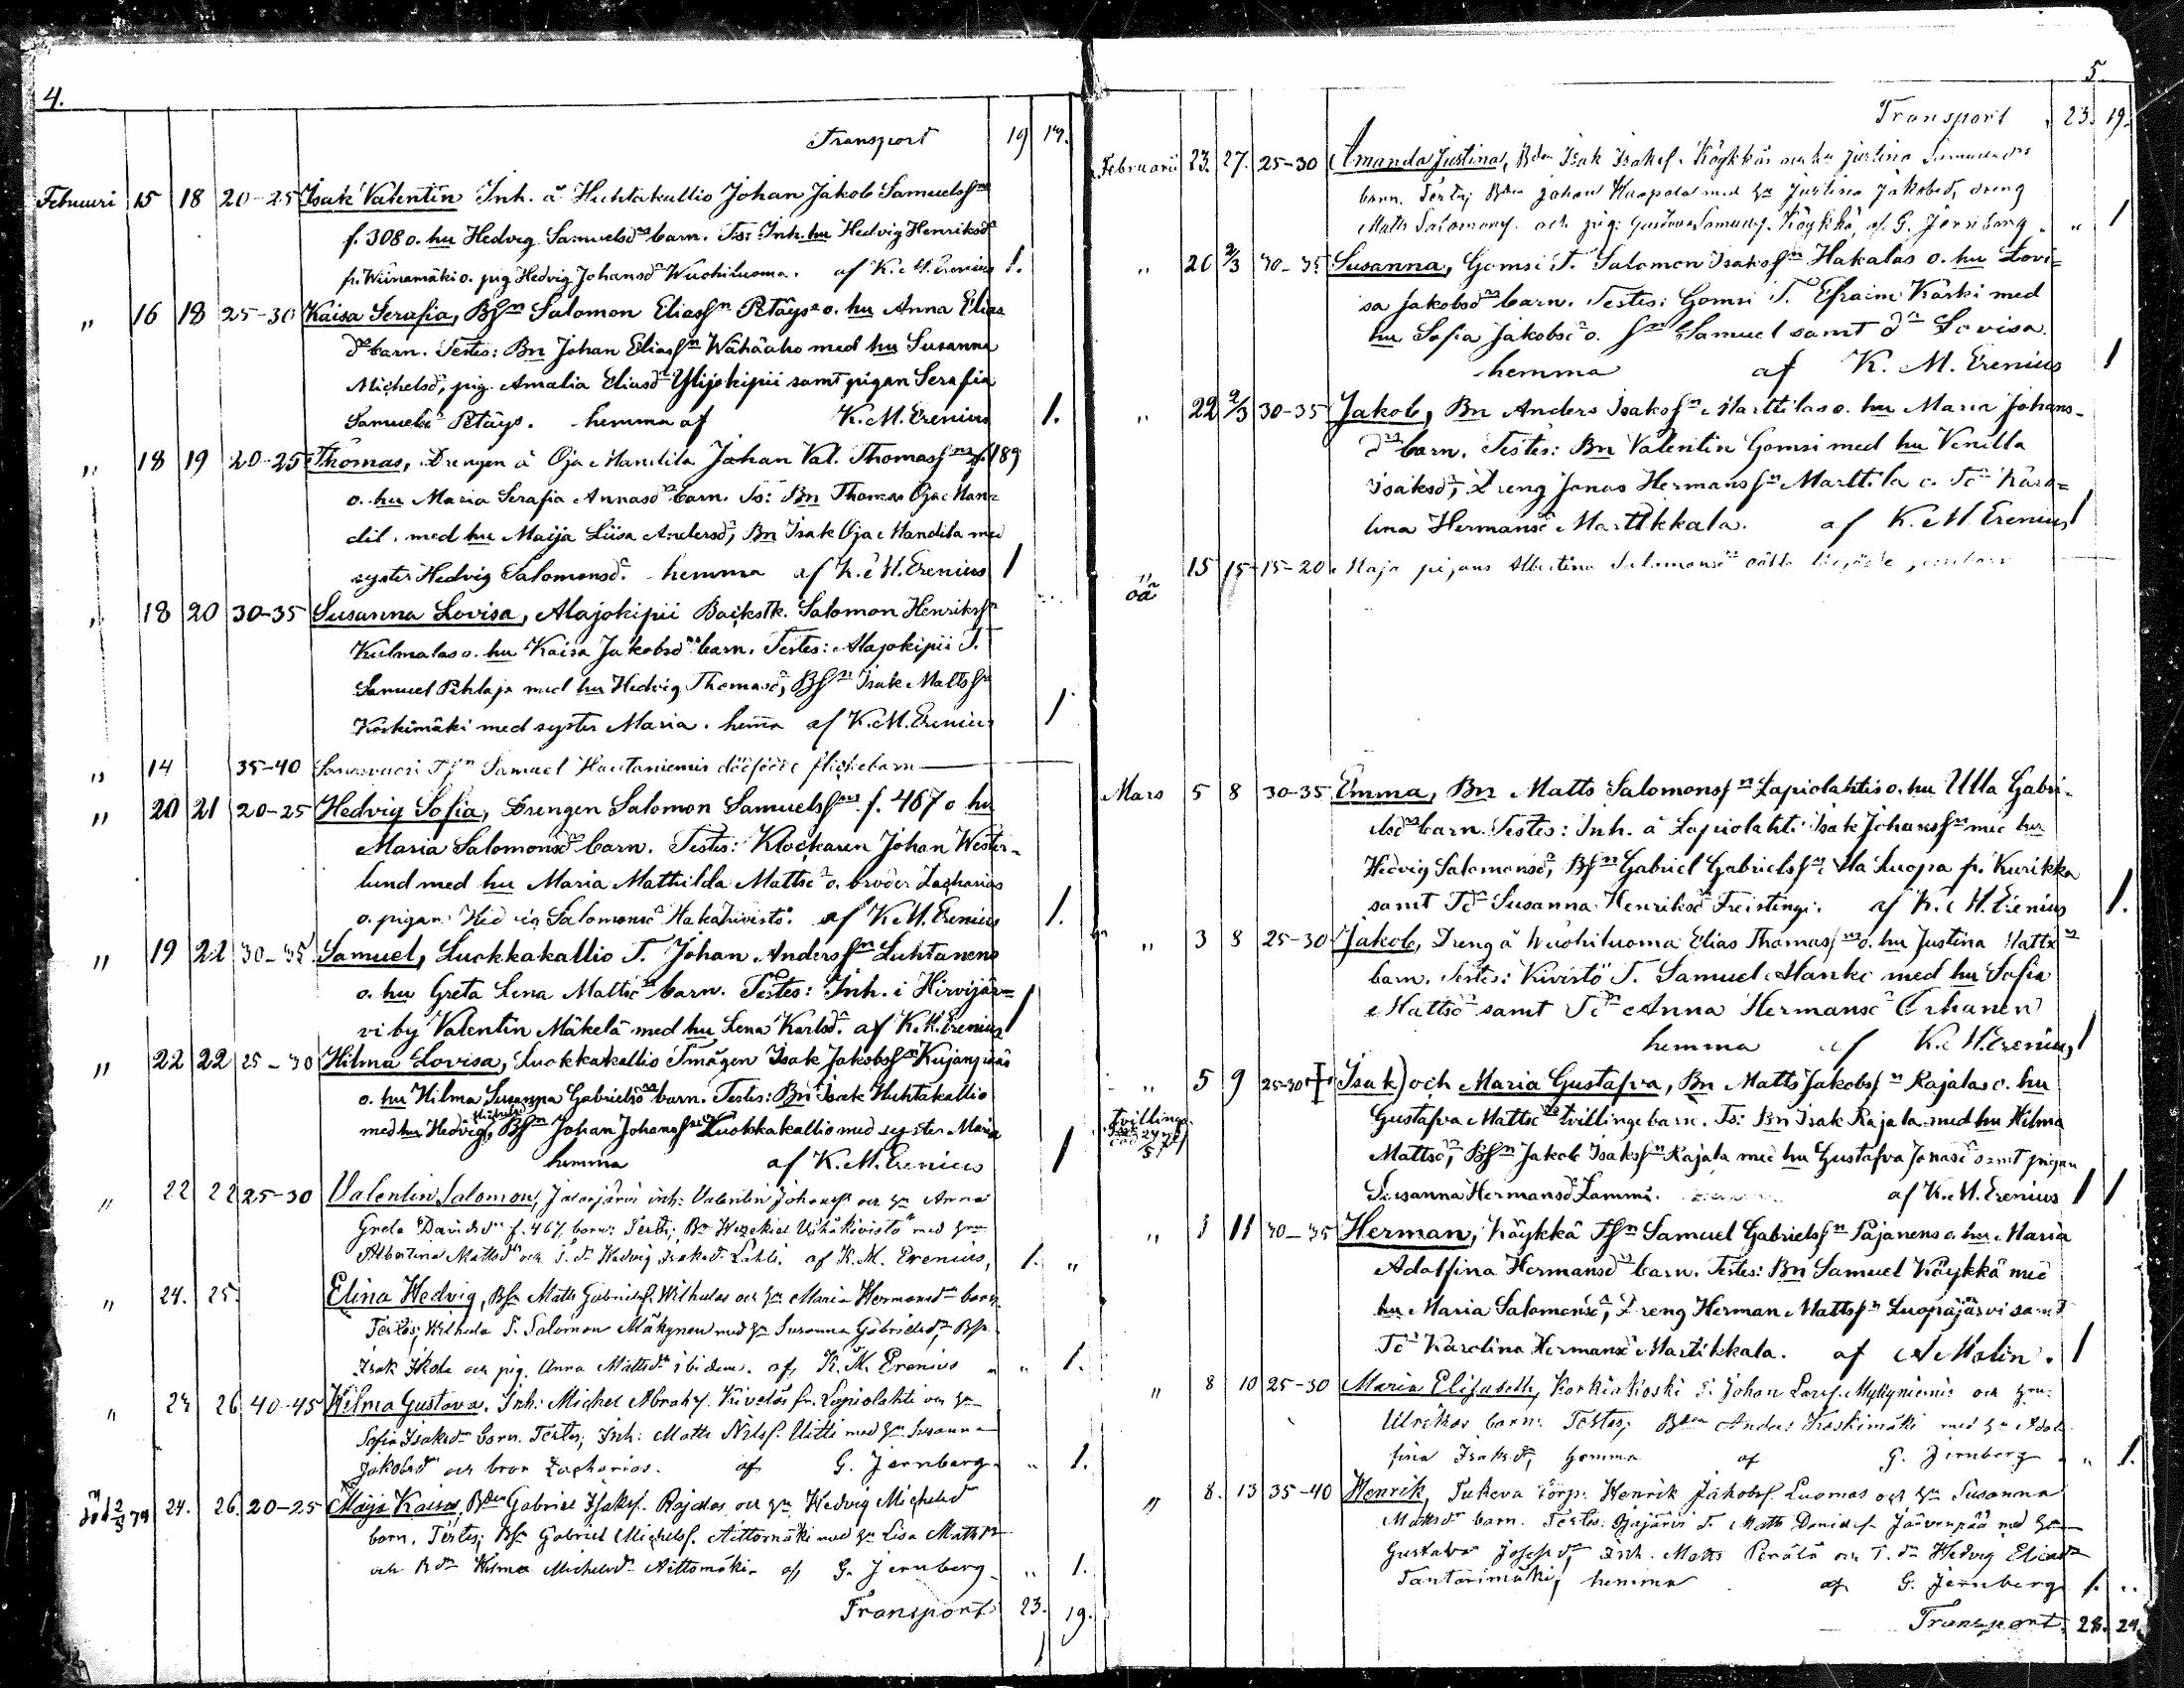 4.
Transport 19 17.
Februari 15 18 20-25 Isak Valentin Inh. å Huhtakallio Johan Jakob Samuelssns
f. 308 o. hu Hedvig Samuelsdrs barn. Ts: Inh. hu Hedvig Henriksdr
fr. Wiinamäki o. pig Hedvig Johansdr Wuohiluoma. af K. M. Erenius 1.
" 16 18 25-30 Kaisa Serafia, Bsn Salomon Eliassn Petäys o. hu Anna Elias
drs barn. Testes: Bn Johan Eliassn Wähäaho med hu Susanna
Michelsdr, pig. Amalia Eliasdr Ylijokipii samt pigan Serafia
Samuelsdr Petäys. hemma af K. M. Erenius 1.
" 18 19 20-25 Thomas, Drengen å Oja Mandila Johan Val. Thomassns f. 189
o. hu Maria Serafia Annasdrs barn. Ts: Bn Thomas Oja Man=
dil. med hu Maija Liisa Andersdr, Bn Isak Oja Mandila med
syster Hedvig Salomonsdr. hemma af K. M. Erenius 1
" 18 20 30-35 Susanna Lovisa, Alajokipii Backstk. Salomon Henrikssn
Kulmalas o. hu Kaisa Jakobsdrs barn. Testes: Alajokipii T.
Samuel Pihlaja med hu Hedvig Thomasdr, Bsn Isak Matssn
Koskimäki med syster Maria. hemma af K. M. Erenius 1
" 14 35-40 Samuel Hautaniemis dödfödde flickebarn
" 20 21 20-25 Hedvig Sofia, Drengen Salomon Samuelssns f. 467 o hu
Maria Salomonsdrs barn. Testes: Klockaren Johan Wester-
lund med hu Maria Mathilda Mattsdr o. broder Zacharias
o. pigan Hedvig Salomonsdr Hakakivistö. af K. M. Erenius 1.
" 19 22 30-35 Samuel, Luokkakallio T. Johan Anderssn Luhtanens
o. hu Greta Lena Mattsdrs barn. Testes: Inh. i Hirvijär=
vi by Valentin Mäkelä med hu Lena Karlsdr. af K. M. Erenius 1
" 22 22 25-30 Hilma Lovisa, Luokkakallio Tmågen Isak Jakobssn Kujanpääs
o. hu Hilma Susanna Gabrielsdrs barn. Testes: Bn Isak Huhtakallio
med hu Hedvig Michelsdr, Bsn Johan Johanssn Luokkakallio med syster Maria
hemma af K. M. Erenius 1
" 22 22 25-30 Valentin Salomon, Jalasjärvi inh: Valentin Johanss och hn Anna
Greta Davidsdrs f. 467 barn: Testes; Bn Hezekiel Wähäkivistö med hn
Albertina Mattsdr och T. dr Hedvig Isaksdr Lahti. af K. M. Erenius, 1. "
" 24. 25. Elina Hedvig, Bsn Matts Gabrielss. Wilhulas och hn Maria Hermansdrs barn
Testes; Wilhula T. Salomon Mäkynen med hn Susanna Gabrielsdr, Bsn
Isak Ikola och pig. Anna Mattsdr ibidem. af K. M. Erenius " 1.
" 24 26 40-45 Hilma Gustava, Inh: Michel Abrahss. Kiveläs fr. Lapiolahti och hn
Sofia Isaksdr barn. Testes; Inh: Matts Nilss. Uitti med hn Susanna
Jakobsdr och bror Zacharias. af G. Jernberg " 1.
död 2/3 79 24. 26. 20-25 Maija Kaisa, Bden Gabriel Isakss. Rajalas och hn Hedvig Michelsdr
barn. Testes; Bsn Gabriel Michelss. Aittomäki med hn Lisa Mattsdr
och B. dr Hilma Michelsdr Aittomäki. af G. Jernberg " 1.
Transport 23. 19.
5
Transport 23. 19.
Februarii 23. 27. 25-30 Amanda Justina, Bden Isak Isakss. Köykkäs och hn Justina Samuelsdrs
barn. Testes; Bden Johan Haapala med hn Justina Jakobsdr, dreng
Matts Salomonss. och pig: Gustava Samuelsd. Köykkä, af G. Jernberg " 1
" 26 2/3 30-35 Susanna, Gomsi T. Salomon Isakssn Hakalas o. hu Lovi=
sa Jakobsdrs barn. Testes: Gomsi T. Efraim Kärki med
hu Sofia Jakobsdr o. sn Samuel samt dr Lovisa.
hemma af K. M. Erenius 1
" 22 2/3 30-35 Jakob, Bn Anders Isakssn Marttilas o. hu Maria Johans-
drs barn. Testes: Bn Valentin Gomsi med hu Venilla
Isaksdr, Dreng Jonas Hermanssn Marttila o. Tdr Karo=
lina Hermansdr Martikkala. af K. M. Erenius 1
" 15 15 15-20 Maja pigans Albertina Salomonsdrs
Mars 5 8 30-35 Emma, Bn Matts Salomonssn Lapiolahtis o. hu Ulla Gabri-
elsdrs barn. Testes: Inh. å Lapiolahti Isak Johanssn med hu
Hedvig Salomonsdr, Bsn Gabriel Gabrielssn Ala Luopa fr. Kurikka
samt Tdr Susanna Henriksdr Freistingi. af K. M. Erenius 1.
" 3 8 25-30 Jakob, Dreng å Wuohiluoma Elias Thomassns o. hu Justina Mattsdrs
barn. Testes: Kivistö T. Samuel Manke med hu Sofia
Mattsdr samt Tdr Anna Hermansdr Orhanen
hemma af K. M. Erenius 1
" 5 9 25-30 † Isak) och Maria Gustafva, Bn Matts Jakobssn Rajalas o. hu
tvillingar Gustafva Mattsdrs tvillingebarn. Ts: Bn Isak Rajala med hu Hilma
Mattsdr, Bsn Jakob Isakssn Rajala med hu Gustafva Jonasdr samt pigan
Susanna Hermansdr Lammi. af K. M. Erenius 1 1
" 1 11 30-35 Herman, Käykkä Tsn Samuel Gabrielssn Pajanens o. hu Maria
Adolfina Hermansdrs barn. Testes: Bn Samuel Käykkä med
hu Maria Salomonsdr, Dreng Herman Mattssn Luopajärvi samt
Tdr Karolina Hermansdr Martikkala. af A Malin. 1
" 8 10 25-30 Maria Elisabeth, Korkiakoski T. Johan Larss. Myllyniemis och hru
Ulrikas barn. Testes; Bden Anders Koskimäki med hn Adol
fina Isaksdr, hemma af G. Jernberg " 1.
" 8. 13 35-40 Henrik, Jukeva torp: Henrik Jakobss. Luomas och hn Susanna
Mattsdr barn. Testes: Ojajärvi T. Matts Daniels. Järvenpää med hn
Gustava Josefsdr, Inh. Matts Perälä och T. dr Hedvig Eliasdr
Tantarimäki, hemma af G. Jernberg 1. "
Transport 28. 24